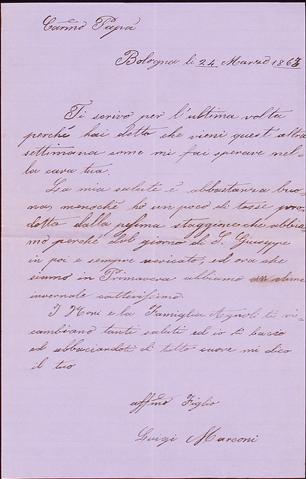 Carmo Papá
Bologna li 24 Marzo 1863
Ti scrivo per l'ultima volta
perché hai detto che vieni quest'altra
settimana come mi fai sperare nel-
la cara tua.
La mia salute é abbastanza buo
na, menoché ho un poco di tosse pro-
dotta dalla pessima staggione che abbia
mo perché dal giorno di S. Giuseppe
in poi e sempre nevicato, ed ora che
siamo in Primavera abbiamo un clima
invernale
I Moni e la Famiglia Agnoli ti ri-
cambiano tanti saluti ed io ti bacio
ed abbacciandoti di tutto cuore mi dico
il tuo
affmo Figlio
Luigi Marconi